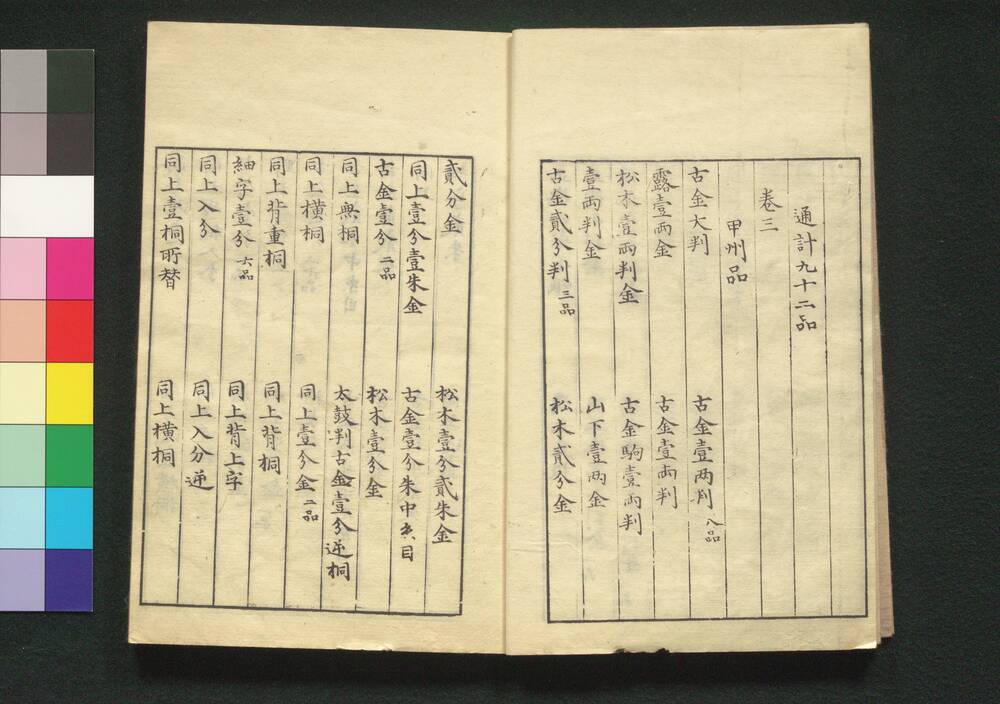 通計九十二品
巻三
甲州品
古金大判
古金壹两判 八品
露壹两金
古金壹两判
松木壹两判金
古金駒壹两判
壹两判金
山下壹两金
古金貳分判 三品
松木貳分金
貳分金
松木壹分貳朱金
同上壹分壹朱金
古金壹分朱中糸目
古金壹分 二品
松木壹分金
同上無桐
太鼓判古金壹分逆桐
同上横桐
同上壹分金 二品
同上背重桐
同上背桐
細字壹分 六品
同上背上字
同上入分
同上入分逆
同上壹桐所替
同上横桐